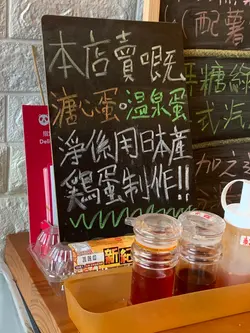 本店賣嘅
溏心蛋。温泉蛋
淨係用日本產
鷄蛋制作!!
(配薯
糖綠
式汽
加之
Deli
新